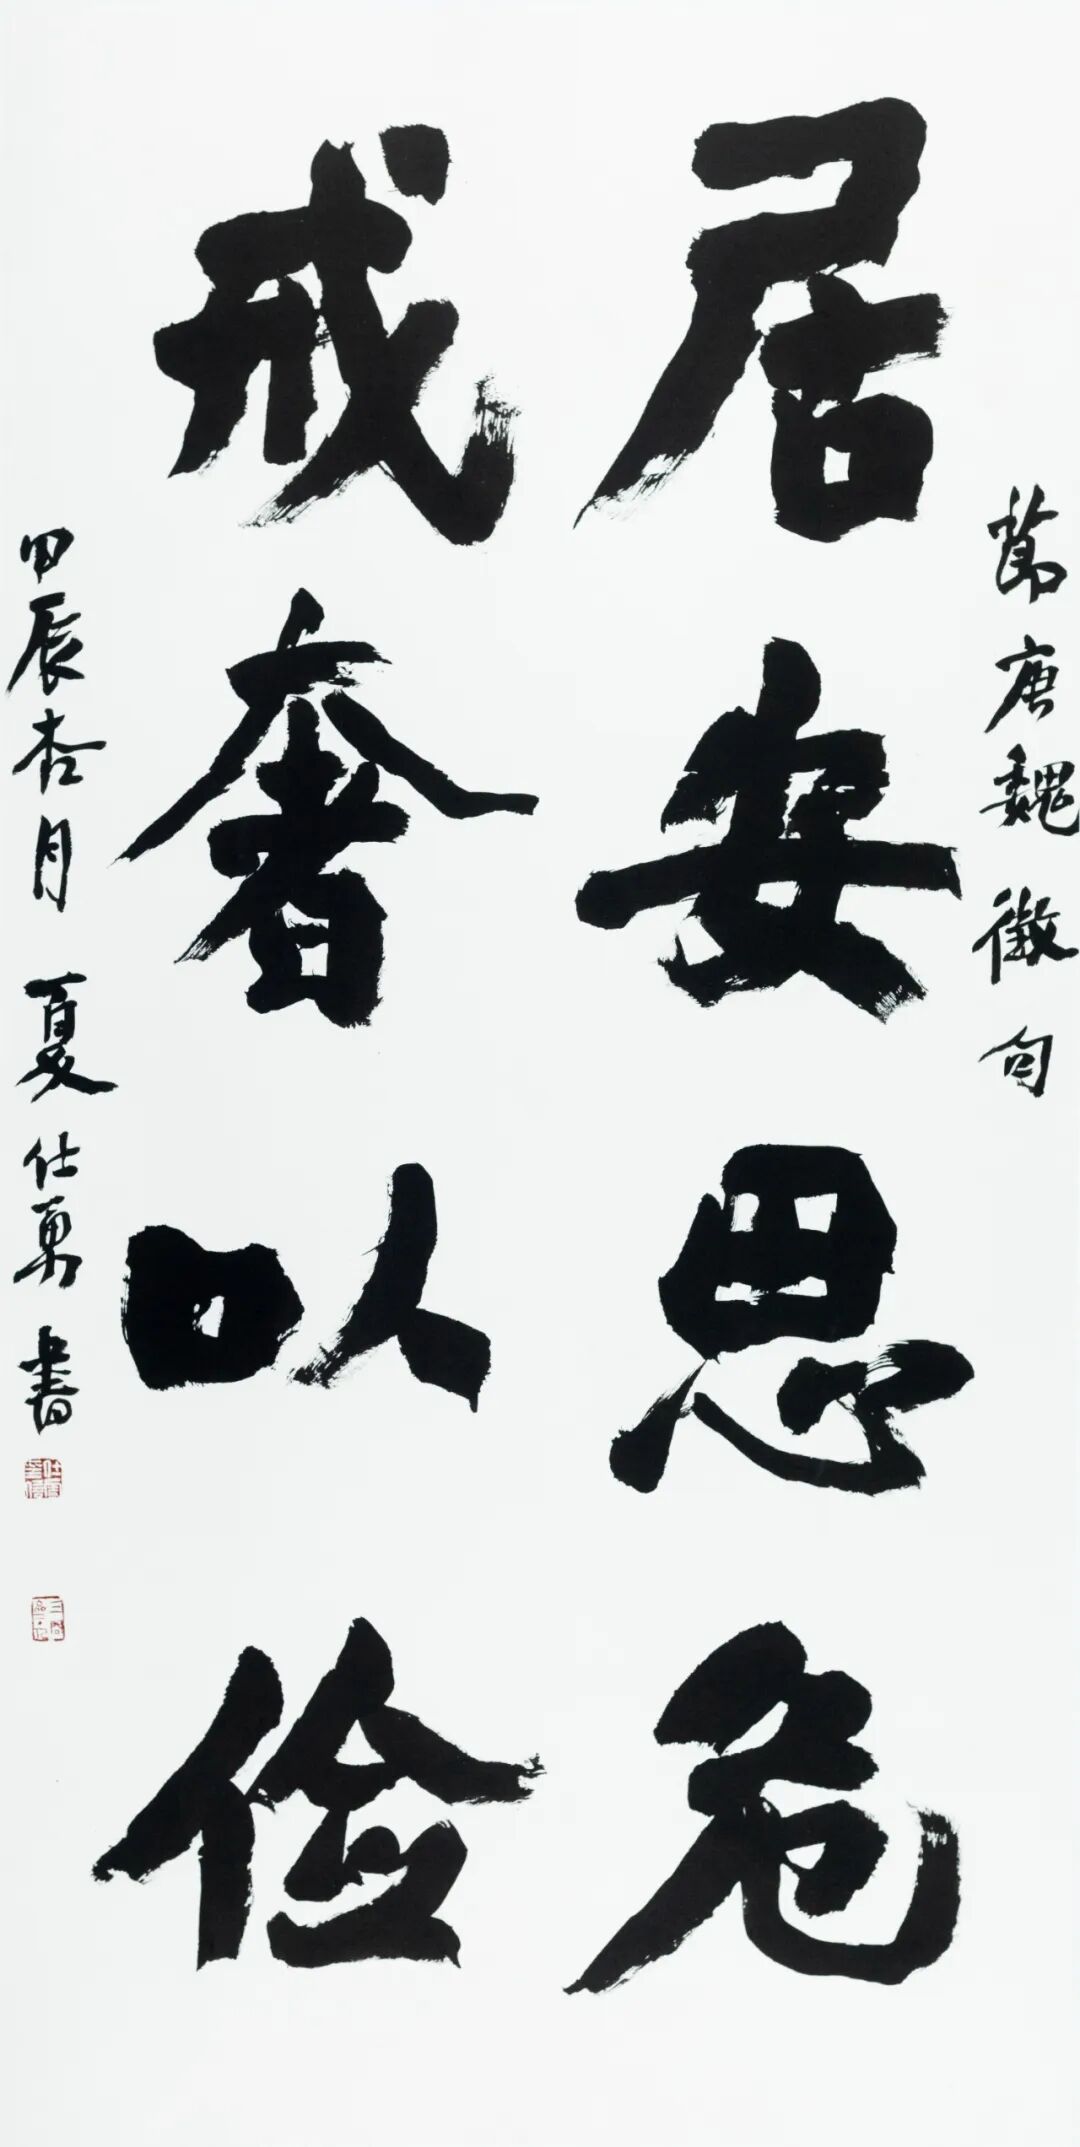 節唐魏徵句
居安思危
戒奢以俭
甲辰杏月 夏仕勇书